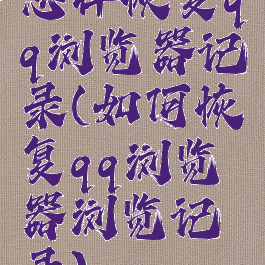 怎样恢复q
q浏览器记
录(如何恢
复qq浏览
器浏览记
录)